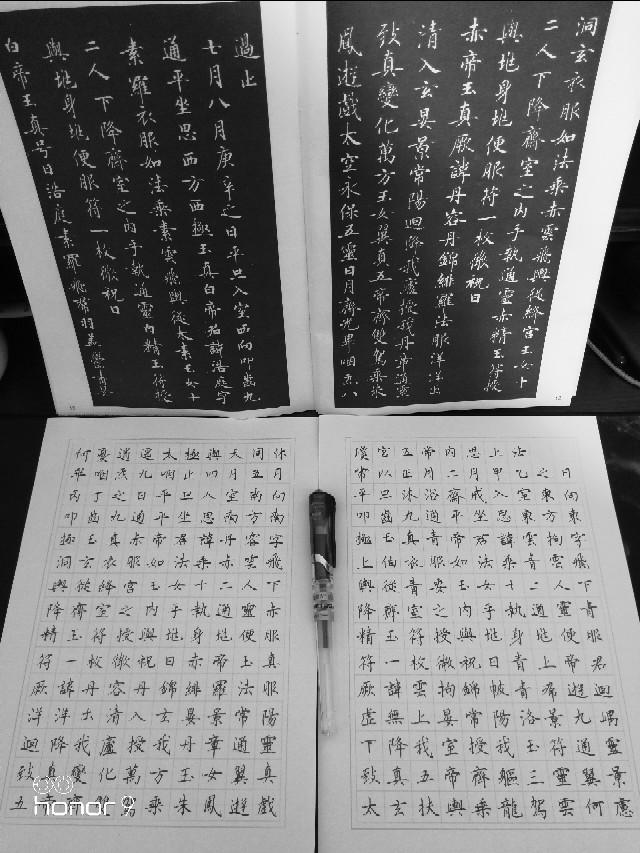 洞玄衣服如法乘赤雲飛輿從絳宮玉女十
二人下降齋室之內手執通靈赤精玉符授
與兆身兆便服符一枚微祝曰
赤帝玉真厥諱丹容丹錦緋羅法服洋洋出
清入玄晏景常陽迴降我廬授我丹章通靈
致真變化萬方玉女翼真五帝齊雙駕乘朱
鳳遊戲太空永保五靈日月齊光畢咽炁八
過止
七月八月庚辛之日平旦入室西向叩齒九
通平坐思西方西極玉真白帝君諱浩庭字
素羅衣服如法乘素雲飛輿從太素玉女十
二人下降齋室之內手執通靈白精玉符授
與兆身兆便服符一枚微祝曰
白帝玉真号曰浩庭素羅飛裙羽蓋鬱青
瓊宮五帝內思上法
常正月二月甲乙之日
平旦沐浴齋戒入室東向
叩齒九通平坐思東方東
極玉真青帝君諱雲拘字
上伯衣服如法乘青雲飛
輿從青要玉女十二人下
降齋室之內手執通靈青
精玉符授與兆身兆便服
符一枚微祝曰青上帝君
厥諱雲拘錦帔青裙遊迴
虛無上晏常陽洛景九嵎
下降我室授我玉符通靈
致真五帝齊軀三靈翼景
太玄扶輿乘龍駕雲何憂
何憂道還太極與天同休
畢咽炁九咽止四月五月
丙丁之日平旦入室南向
叩齒九通平坐思南方南
極玉真赤帝君諱丹容字
洞玄衣服如法乘赤雲飛
輿從絳宮玉女十二人下
降齋室之內手執通靈赤
精玉符授與兆身兆便服
符一枚微祝曰赤帝玉真
厥諱丹容丹錦緋羅法服
洋洋出清入玄晏景常陽
迴降我廬授我丹章通靈
致真變化萬方玉女翼真
五帝齊雙駕乘朱鳳遊戲
honor 9